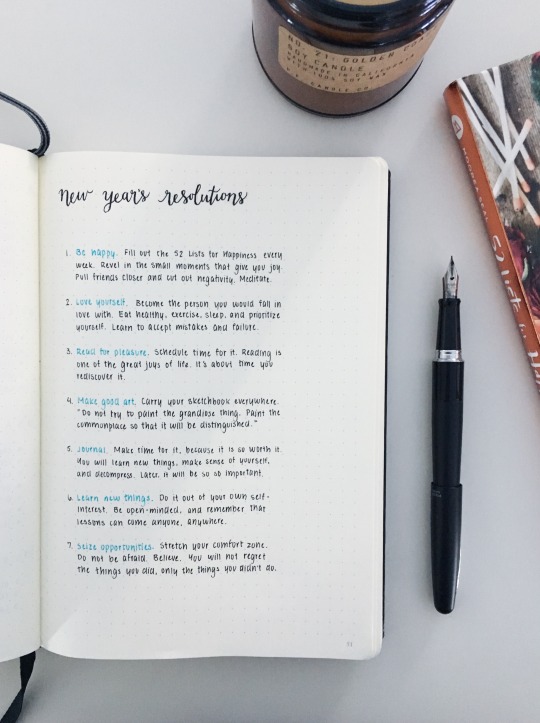 NO. 21: GOLDEN
SOY CANDLE
HANDMADE IN CALIFORNIA
WITH 100% SOY WAX
P.F. CANDLE CO
new year's resolutions
1. Be happy. Fill out the 52 Lists for Happiness every
week. Revel in the small moments that give you joy.
Pull friends closer and cut out negativity. Meditate.
2. Love yourself. Become the person you would fall in
love with. Eat healthy, exercise, sleep, and prioritize
yourself. Learn to accept mistakes and failure.
3. Read for pleasure. Schedule time for it. Reading is
one of the great joys of life. It's about time you
rediscover it.
4. Make good art. Carry your sketchbook everywhere.
"Do not try to paint the grandiose thing. Paint the
commonplace so that it will be distinguished."
5. Journal. Make time for it, because it is so worth it.
You will learn new things, make sense of yourself,
and decompress. Later, it will be so so important.
6. Learn new things. Do it out of your own self-
interest. Be open-minded, and remember that
lessons can come anyone, anywhere.
7. Seize opportunities. Stretch your comfort zone.
Do not be afraid. Believe. You will not regret
the things you did, only the things you didn't do.
52 Lists